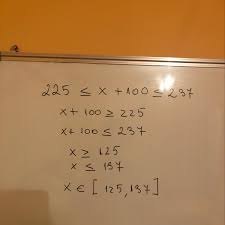 225 ≤ x + 100 ≤ 237
x + 100 ≥ 225
x + 100 ≤ 237
x ≥ 125
x ≤ 137
x ∈ [ 125, 137 ]